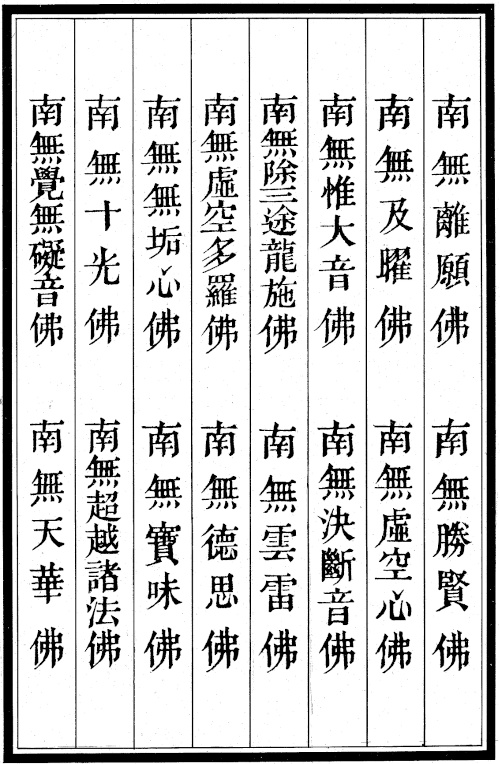 南無離願佛　南無勝賢佛
南無及曜佛　南無虛空心佛
南無惟大音佛　南無決斷音佛
南無除三途龍施佛　南無雲雷佛
南無虛空多羅佛　南無德思佛
南無無垢心佛　南無寶味佛
南無十光佛　南無超越諸法佛
南無覺無礙音佛　南無天華佛